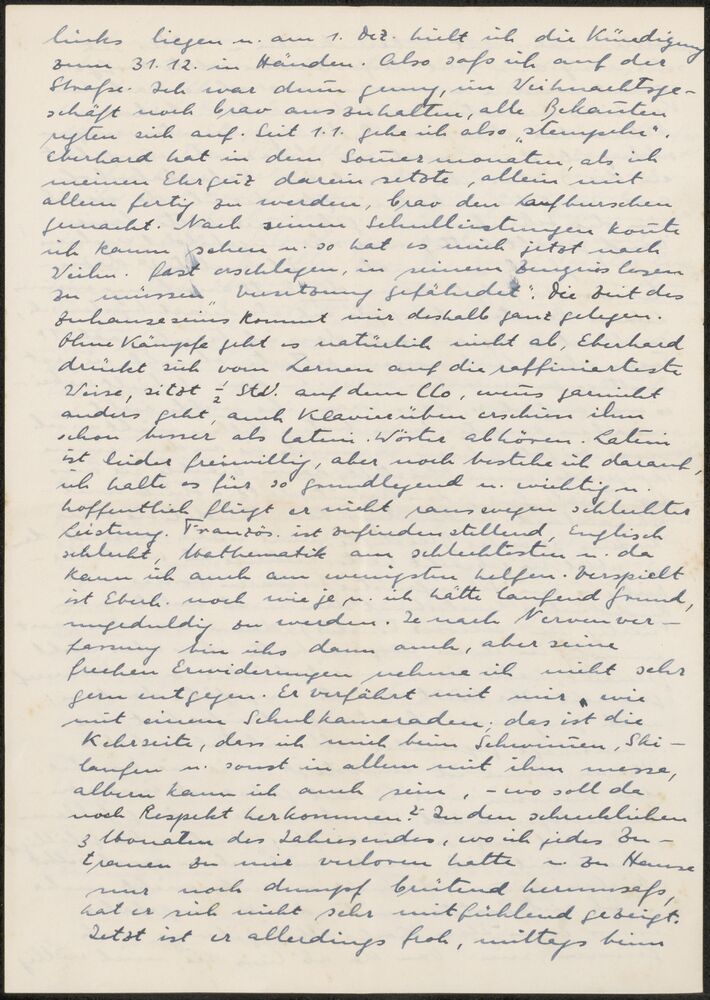 links liegen u. am 1. Dez. hielt ich die Kündigung
zum 31.12. in Händen. Also saß ich auf der
Straße. Ich war dumm genug, im Weihnachtsge-
schäft noch brav auszuhalten, alle Bekannten
regten sich auf. Seit 1.1. gehe ich also „stempeln".
Eberhard hat in den Sommermonaten, als ich
meinen Ehrgeiz darein setzte, allein mit
allem fertig zu werden, brav den Laufburschen
gemacht. Nach seinen Schulleistungen konnte
ich kaum sehen u. so hat es mich jetzt nach
Weihn. fast erschlagen, in seinem Zeugnis lesen
zu müssen „Versetzung gefährdet". Die Zeit des
Zuhauseseins kommt mir deshalb ganz gelegen.
Ohne Kämpfe geht es natürlich nicht ab, Eberhard
drückt sich vom Lernen auf die raffinierteste
Weise, sitzt ½ Std. auf dem Clo, wenns garnicht
anders geht, auch Klavierüben erschien ihm
schon besser als latein. Wörter abhören. Latein
ist leider freiwillig, aber noch bestehe ich darauf,
ich halte es für so grundlegend u. wichtig u.
hoffentlich fliegt er nicht raus wegen schlechter
Leistung. Französ. ist zufriedenstellend, Englisch
schlecht, Mathematik am schlechtesten u. da
kann ich auch am wenigsten helfen. Verspielt
ist Eberh. noch wie je u. ich hätte laufend Grund,
ungeduldig zu werden. Je nach Nervenver-
fassung bin ichs dann auch, aber seine
frechen Erwiderungen nehme ich nicht sehr
gern entgegen. Er verfährt mit mir, wie
mit einem Schulkameraden; das ist die
Kehrseite, dass ich mich beim Schwimmen, Ski-
laufen u. sonst in allem mit ihm messe,
albern kann ich auch sein, – wo soll da
noch Respekt herkommen? In den schrecklichen
3 Monaten des Jahresendes, wo ich jedes Zu-
trauen zu mir verloren hatte u. zu Hause
nur noch dumpf brütend herumsaß,
hat er sich nicht sehr mitfühlend gezeigt.
Jetzt ist er allerdings froh, mittags beim